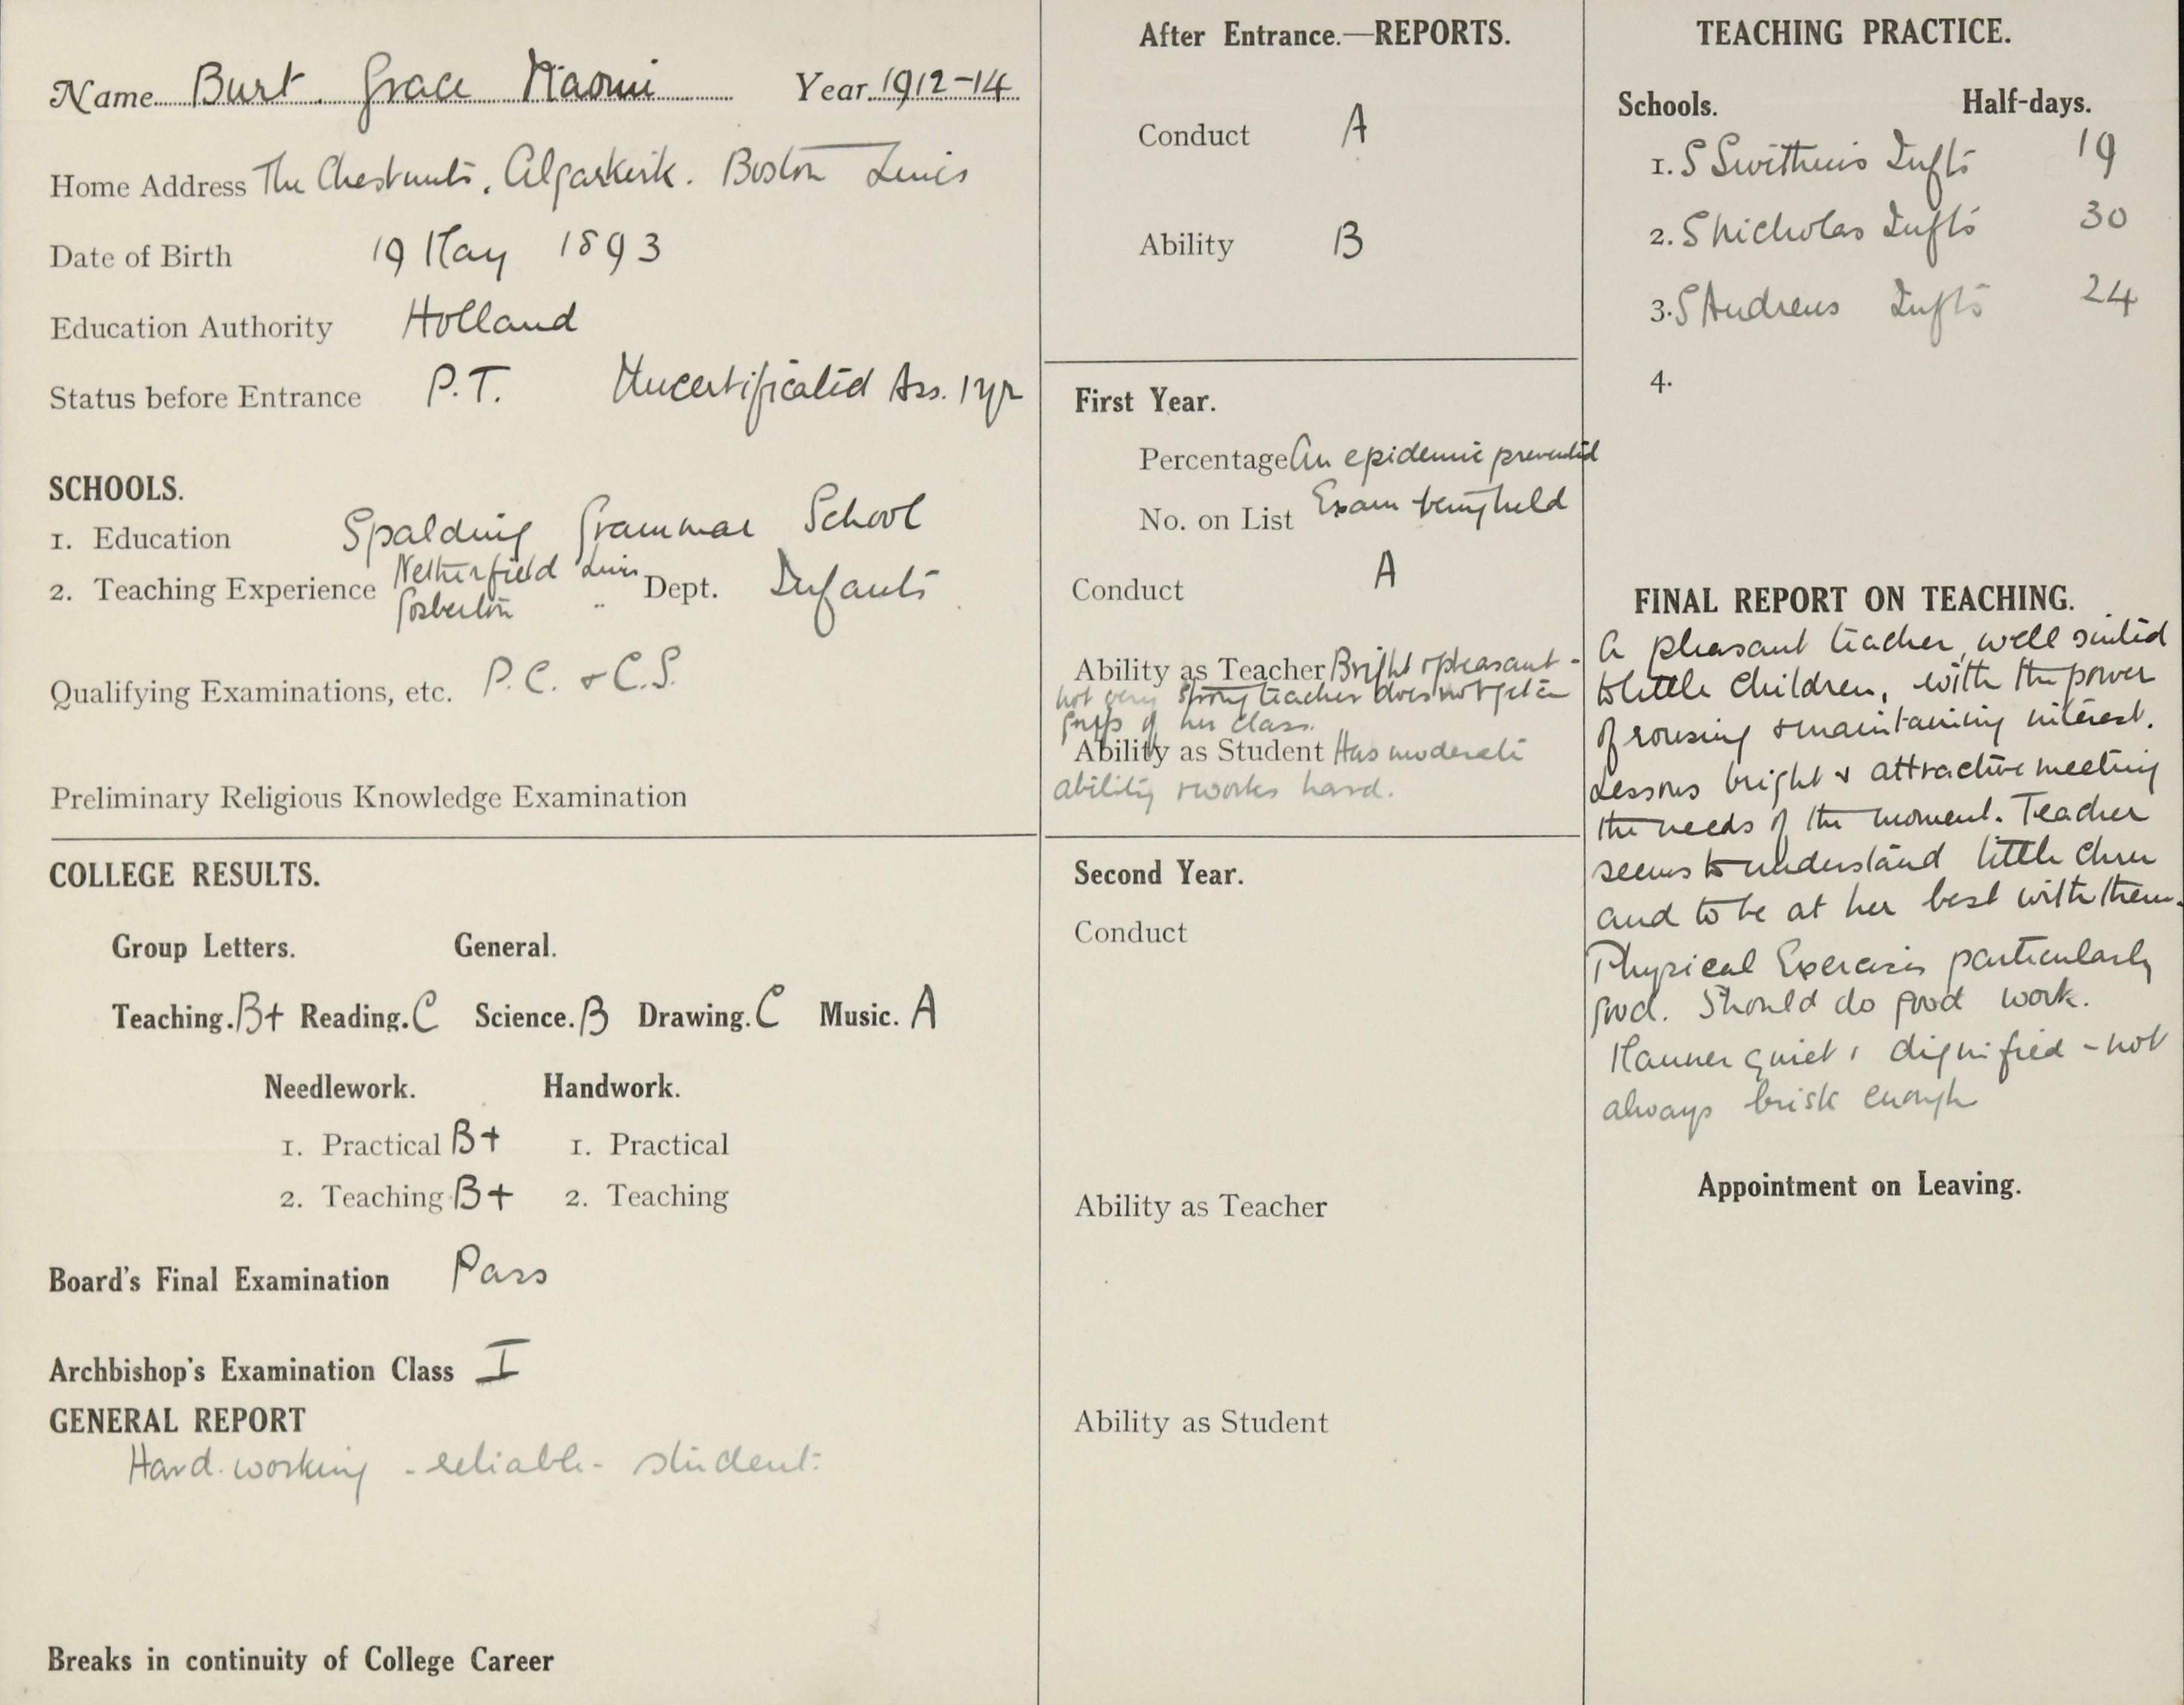 Name Burt. Grace Naomi Year 1912-14
Home Address The Chestnuts, Algarkirk. Boston Lincs
Date of Birth 19 May 1893
Education Authority Holland
Status before Entrance P.T. Uncertificated Ass. 1 yr
SCHOOLS.
1. Education Spalding Grammar School
2. Teaching Experience Netherfield Lincs Dept. Infants
Gosberton "
Qualifying Examinations, etc. P.C. & C.S.
Preliminary Religious Knowledge Examination
COLLEGE RESULTS.
Group Letters. General.
Teaching. B+ Reading. C Science. B Drawing. C Music. A
Needlework. Handwork.
1. Practical B+ 1. Practical
2. Teaching B+ 2. Teaching
Board's Final Examination Pass
Archbishop's Examination Class I
GENERAL REPORT
Hard-working - reliable - student.
Breaks in continuity of College Career
After Entrance.—REPORTS.
Conduct A
Ability B
First Year.
Percentage An epidemic prevented
No. on List Exam being held
Conduct A
Ability as Teacher Bright & pleasant -
not very strong teacher does not get a
grip of her class.
Ability as Student Has moderate
ability & works hard.
Second Year.
Conduct
Ability as Teacher
Ability as Student
TEACHING PRACTICE.
Schools. Half-days.
1. S Swithin's Infts 19
2. S Nicholas Infts 30
3. S Andrews Infts 24
4.
FINAL REPORT ON TEACHING.
A pleasant teacher, well suited
to little children, with the power
of rousing & maintaining interest.
Lessons bright & attractive meeting
the needs of the moment. Teacher
seems to understand little chn
and to be at her best with them.
Physical Exercises particularly
good. Should do good work.
Manner quiet & dignified - not
always brisk enough
Appointment on Leaving.